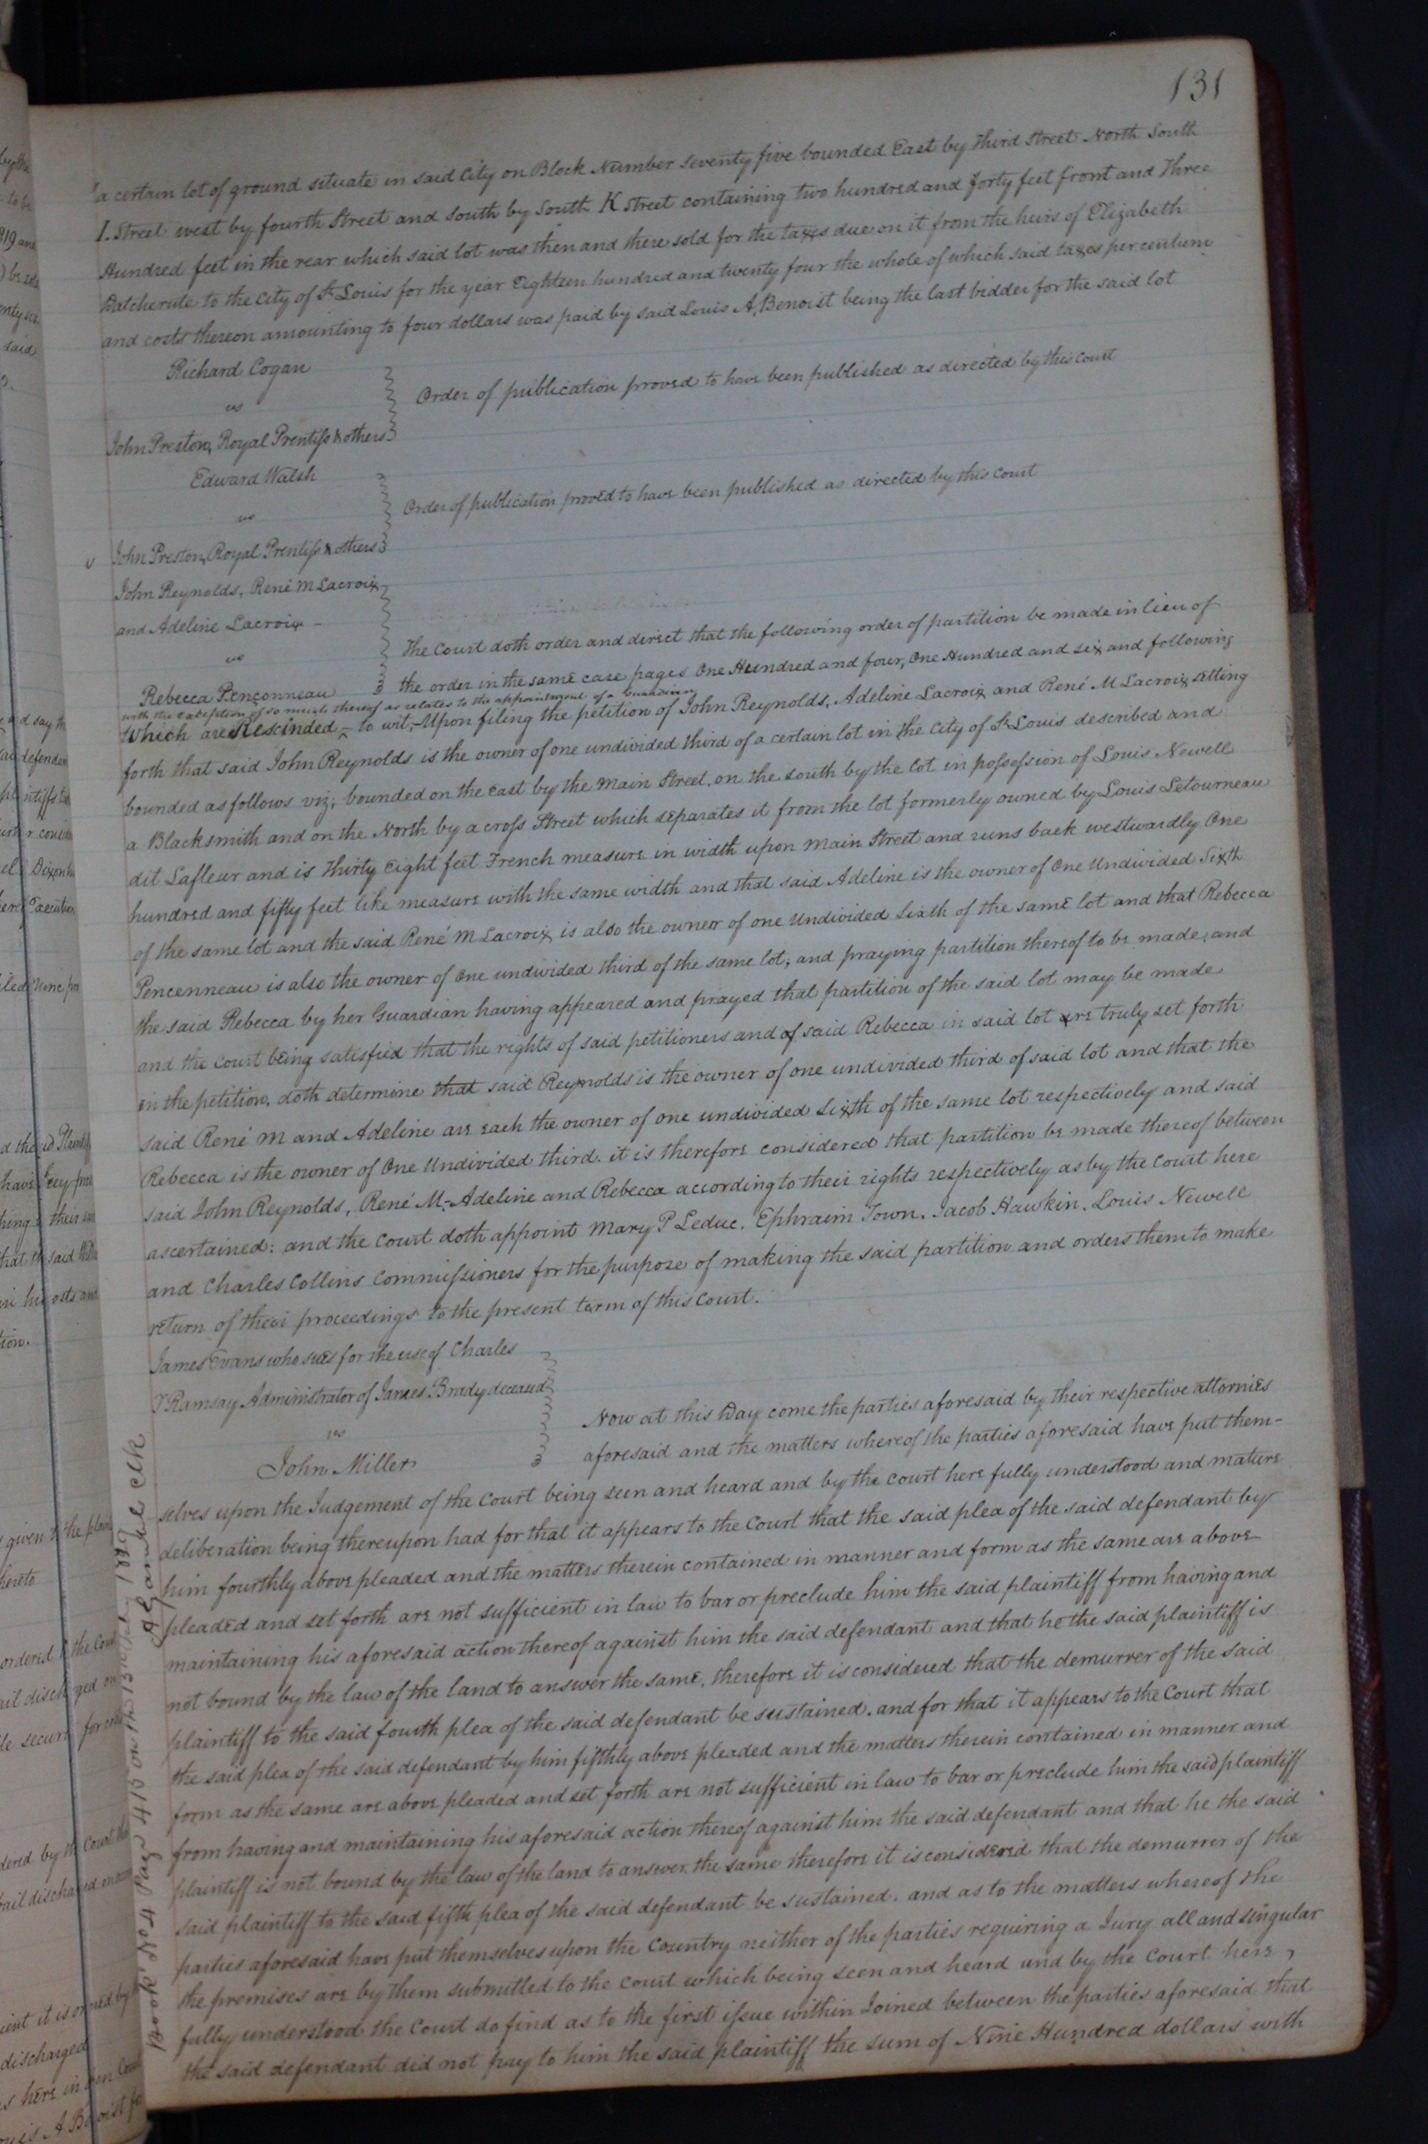 131
a certain lot of ground situate in said City on Block Number seventy five bounded East by Third Street North South
I. Street west by fourth Street and south by South K street containing two hundred and forty feet front and Three
Hundred feet in the rear which said lot was then and there sold for the taxes due on it from the heirs of Elizabeth
to the City of St. Louis for the year Eighteen hundred and twenty four the whole of which said taxes per centum
and costs thereon amounting to four dollars was paid by said Louis A. Benoist being the last bidder for the said lot
Richard Cogan
vs
John Preston, Royal Prentiss & others
Order of publication proved to have been published as directed by this court
Edward Walsh
vs
John Preston, Royal Prentiss & others
Order of publication proved to have been published as directed by this Court
John Reynolds, René M Lacroix
and Adeline Lacroix
vs
Rebecca Penconneau
The Court doth order and direct that the following order of partition be made in lieu of
the order in the same case pages One Hundred and four, One Hundred and six and following
with the exception of so much thereof as relates to the appointment of a Guardian
Which are Rescinded, to wit, Upon filing the petition of John Reynolds, Adeline Lacroix and René M Lacroix setting
forth that said John Reynolds is the owner of one undivided third of a certain lot in the City of St. Louis described and
bounded as follows viz; bounded on the east by the Main Street, on the south by the lot in possession of Louis Newell
a Blacksmith and on the North by a cross Street which separates it from the lot formerly owned by Louis Letourneau
dit Lafleur and is Thirty Eight feet French measure in width upon Main Street and runs back westwardly One
hundred and fifty feet like measure with the same width and that said Adeline is the owner of One Undivided Sixth
of the same lot and the said René M Lacroix is also the owner of one undivided sixth of the same lot and that Rebecca
Pencenneau is also the owner of one undivided third of the same lot, and praying partition thereof to be made, and
the said Rebecca by her Guardian having appeared and prayed that partition of the said lot may be made
and the Court being satisfied that the rights of said petitioners and of said Rebecca in said lot are truly set forth
in the petition, doth determine that said Reynolds is the owner of one undivided third of said lot and that the
said René M and Adeline are each the owner of one undivided sixth of the same lot respectively and said
Rebecca is the owner of One Undivided third. it is therefore considered that partition be made thereof between
said John Reynolds, René M. Adeline and Rebecca according to their rights respectively as by the Court here
ascertained: and the Court doth appoint Mary P Leduc, Ephraim Town, Jacob Hawkin, Louis Newell
and Charles Collins Commissioners for the purpose of making the said partition and orders them to make
return of their proceedings to the present term of this Court.
James Evans who sues for the use of Charles
T Ramsay Administrator of James Brady deceased
vs
John Miller
Now at this Day come the parties aforesaid by their respective attornies
aforesaid and the matters whereof the parties aforesaid have put them-
selves upon the Judgement of the Court being seen and heard and by the court here fully understood and mature
deliberation being thereupon had for that it appears to the Court that the said plea of the said defendant by
him fourthly above pleaded and the matters therein contained in manner and form as the same are above
pleaded and set forth are not sufficient in law to bar or preclude him the said plaintiff from having and
maintaining his aforesaid action thereof against him the said defendant and that he the said plaintiff is
not bound by the law of the land to answer the same, therefore it is considered that the demurrer of the said
plaintiff to the said fourth plea of the said defendant be sustained. and for that it appears to the Court that
the said plea of the said defendant by him fifthly above pleaded and the matters therein contained in manner and
form as the same are above pleaded and set forth are not sufficient in law to bar or preclude him the said plaintiff
from having and maintaining his aforesaid action thereof against him the said defendant and that he the said
plaintiff is not bound by the law of the land to answer the same therefore it is considered that the demurrer of the
said plaintiff to the said fifth plea of the said defendant be sustained. and as to the matters whereof the
parties aforesaid have put themselves upon the Country neither of the parties requiring a Jury all and singular
the premises are by them submitted to the court which being seen and heard and by the Court here,
fully understood the Court do find as to the first issue within Joined between the parties aforesaid that
the said defendant did not pay to him the said plaintiff the sum of Nine Hundred dollars with
Book No 4 Page 415 on the 13th 1829
clk